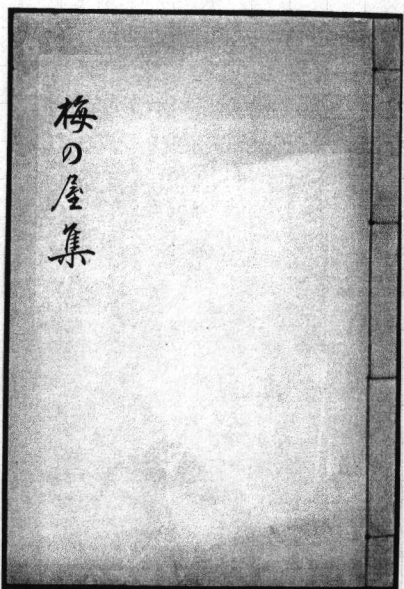 梅の屋集